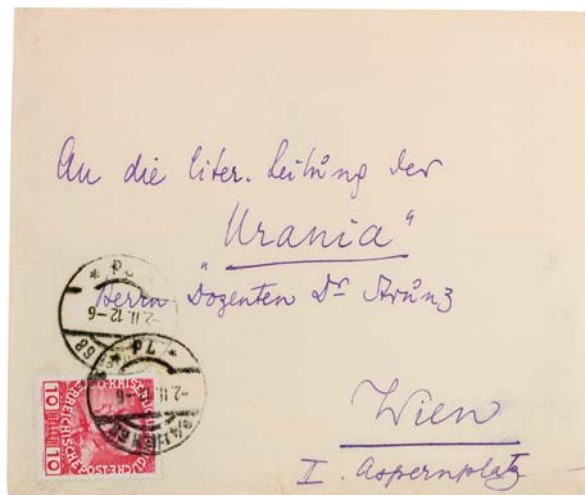 An die liter. Leitung der
„Urania“
Herrn Dozenten Dr Strunz
Wien
I. Aspernplatz
-2.II.12-6
-2.II.12-6
10 10